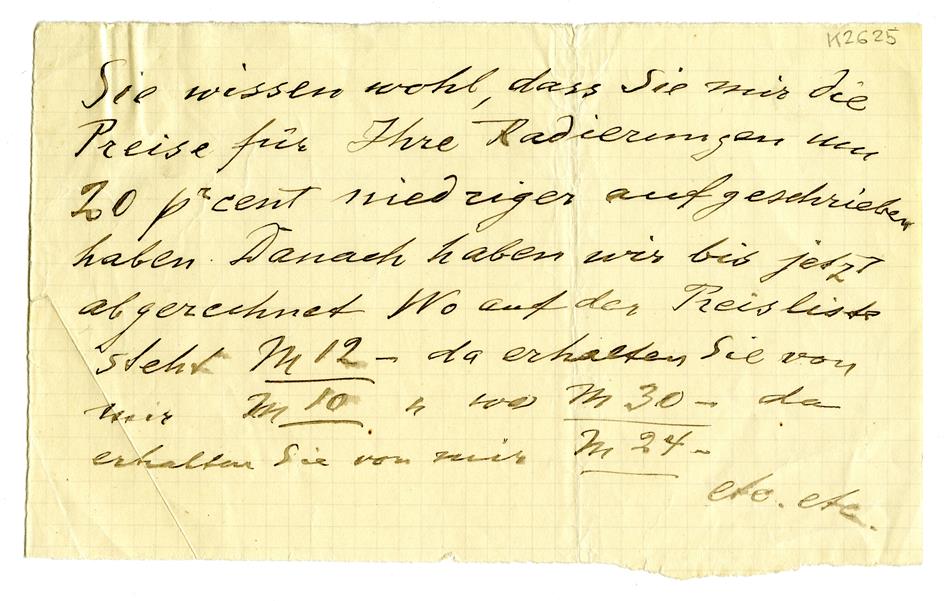 K2625
Sie wissen wohl, dass Sie mir die
Preise für Ihre Radierungen um
20 prcent niedriger aufgeschrieben
haben. Danach haben wir bis jetzt
abgerechnet Wo auf der Preisliste
steht M 12 – da erhalten Sie von
mir M 10 u wo M 30 – da
erhalten Sie von mir M 24 –
etc. etc.